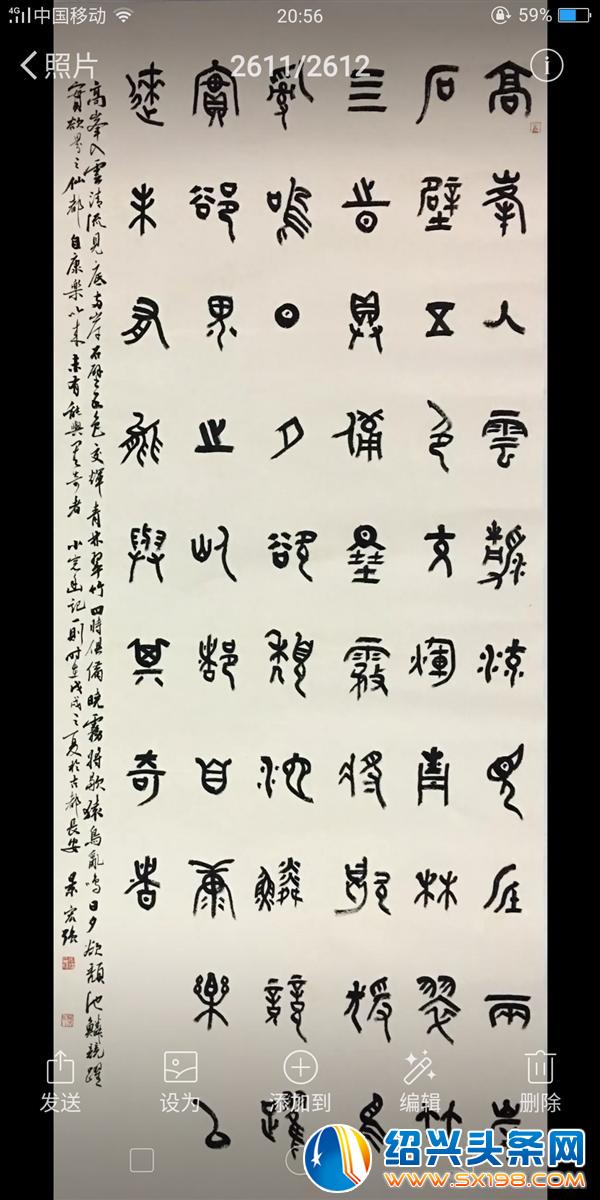 4G 中国移动 20:56 59%
照片 2611/2612
高峯入雲清流見底兩岸
石壁五色交輝青林翠竹
四時俱備曉霧將歇猨鳥
亂鳴日夕欲頹沈鱗競躍
實欲界之仙都自康樂以
來未有能與其奇者
高峯入雲清流見底兩岸石壁五色交輝青林翠竹四時俱備曉霧將歇猿鳥亂鳴日夕欲頹池鱗競躍
實欲界之仙都自康樂以來未有能與其奇者 小窗幽記一則时在戊戌之夏於古都長安 景宏强
发送 设为 添加到 编辑 删除
绍兴头条网
WWW.SX198.COM